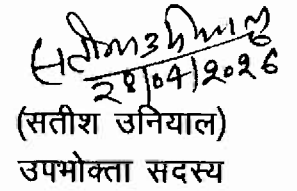 सतीश उनियाल
28/04/2026
(सतीश उनियाल)
उपभोक्ता सदस्य